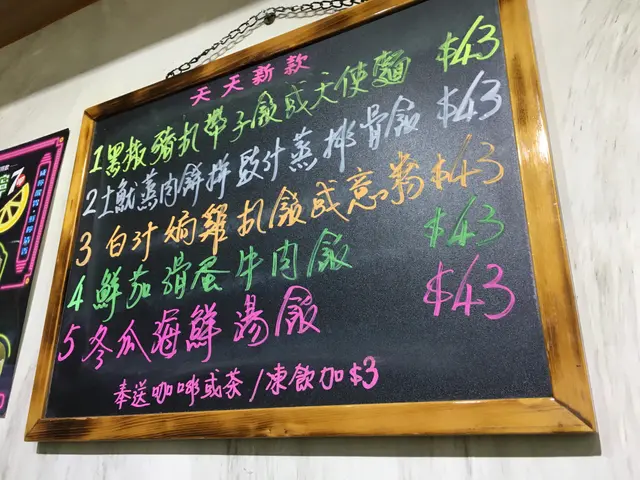 天天新款
1黑椒豬扒帶子飯或天使麵 $43
2土魷蒸肉餅拼豉汁蒸排骨飯 $43
3 白汁焗雞扒飯或意粉 $43
4 鮮茄滑蛋牛肉飯 $43
5 冬瓜海鮮湯飯 $43
奉送咖啡或茶/凍飲加$3